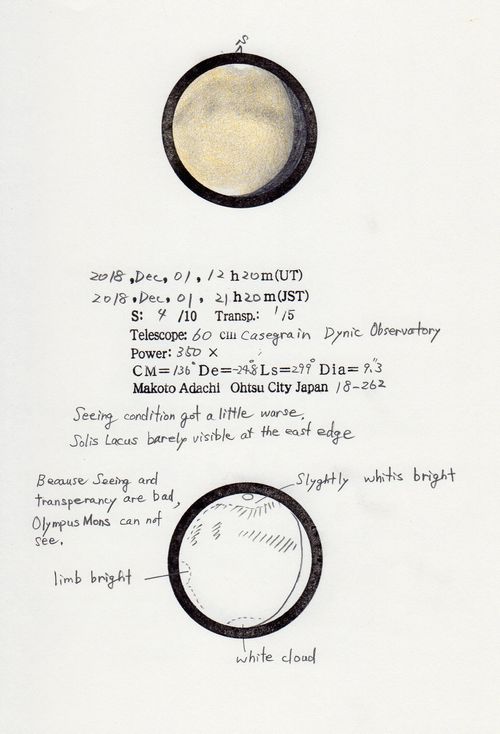 S
2018, Dec, 01, 12 h 20 m (UT)
2018, Dec, 01, 21 h 20 m (JST)
S: 4 /10 Transp.: 1/5
Telescope: 60 cm Casegrain Dynic Observatory
Power: 350 ×
CM=136° De=-24.8 Ls=299° Dia= 9."3
Makoto Adachi Ohtsu City Japan 18-262
Seeing condition got a little worse.
Solis Lacus barely visible at the east edge
Because Seeing and
transperancy are bad,
Olympus Mons can not
see.
Slyghtly whitis bright
limb bright
white cloud